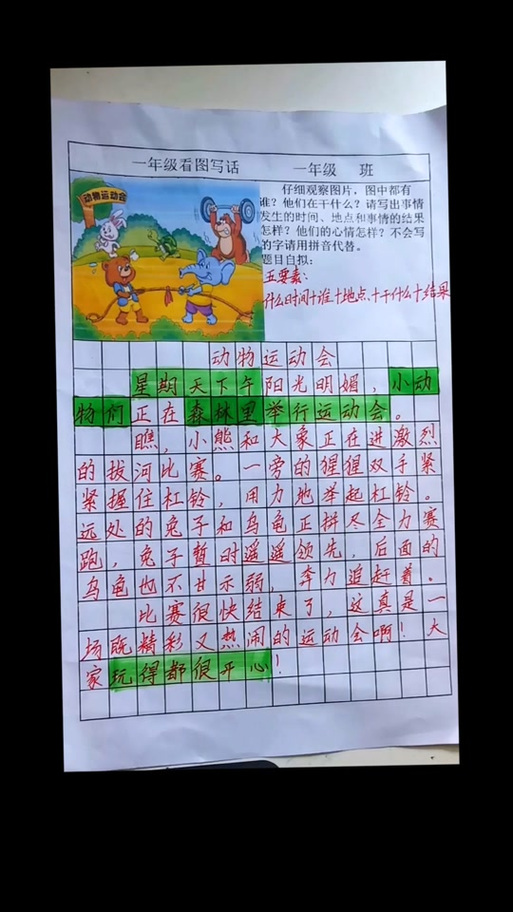 一年级看图写话 一年级 班
动物运动会
仔细观察图片，图中都有
谁？他们在干什么？请写出事情
发生的时间、地点和事情的结果
怎样？他们的心情怎样？不会写
的字请用拼音代替。
题目自拟：
五要素：
什么时间+谁+地点+干什么+结果
动物运动会
星期天下午阳光明媚，小动
物们正在森林里举行运动会。
瞧，小熊和大象正在进激烈
的拔河比赛。一旁的猩猩双手紧
紧握住杠铃，用力地举起杠铃。
远处的兔子和乌龟正拼尽全力赛
跑，兔子暂时遥遥领先，后面的
乌龟也不甘示弱，奔力追赶着。
比赛很快结束了，这真是一
场既精彩又热闹的运动会啊！大
家玩得都很开心！